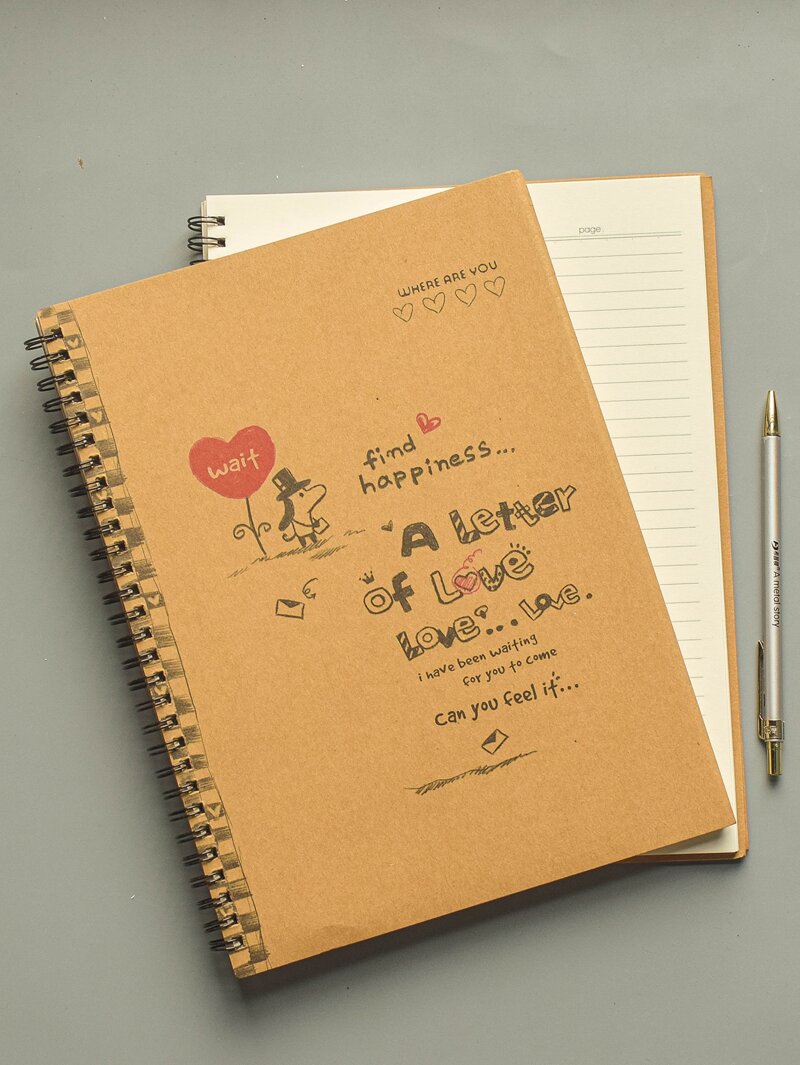 page:
WHERE ARE YOU
wait
find
happiness...
A Letter
of Love
Love... Love.
i have been waiting
for you to come
Can you feel it...
A metal story